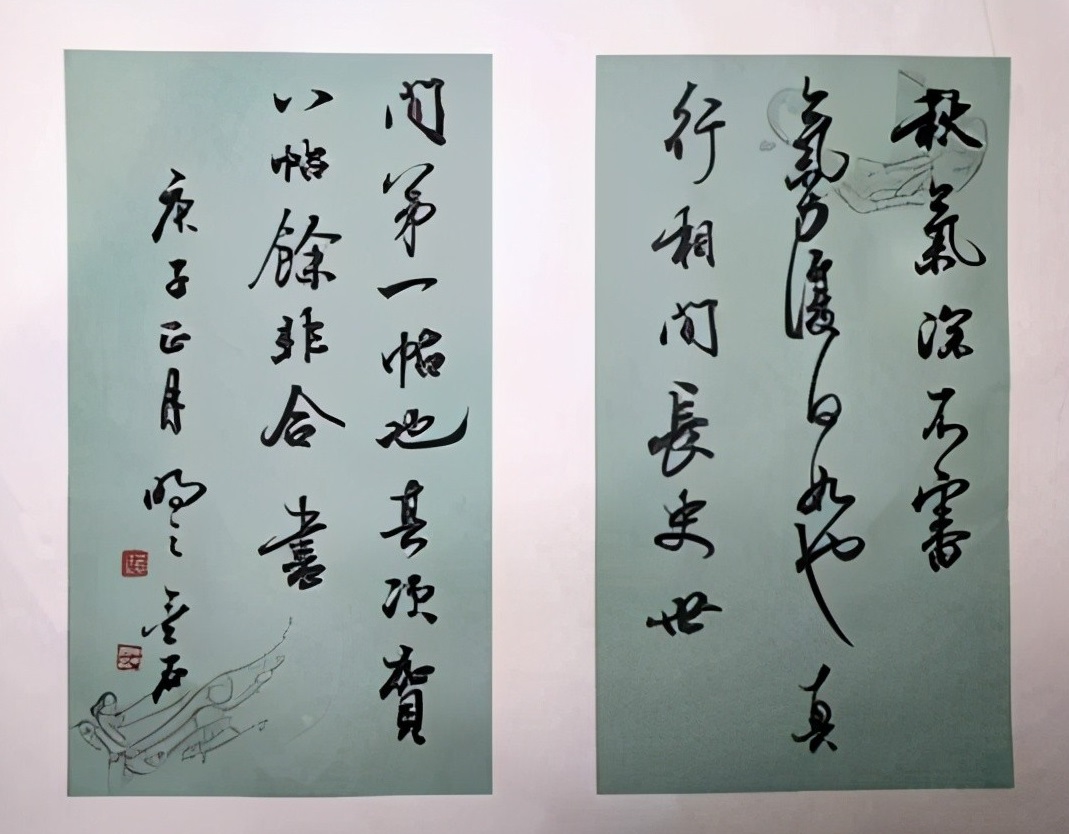 秋氣深不審
氣力復何如也真
行相間長史世
間第一帖也其次賀
八帖餘非合書
庚子正月明之